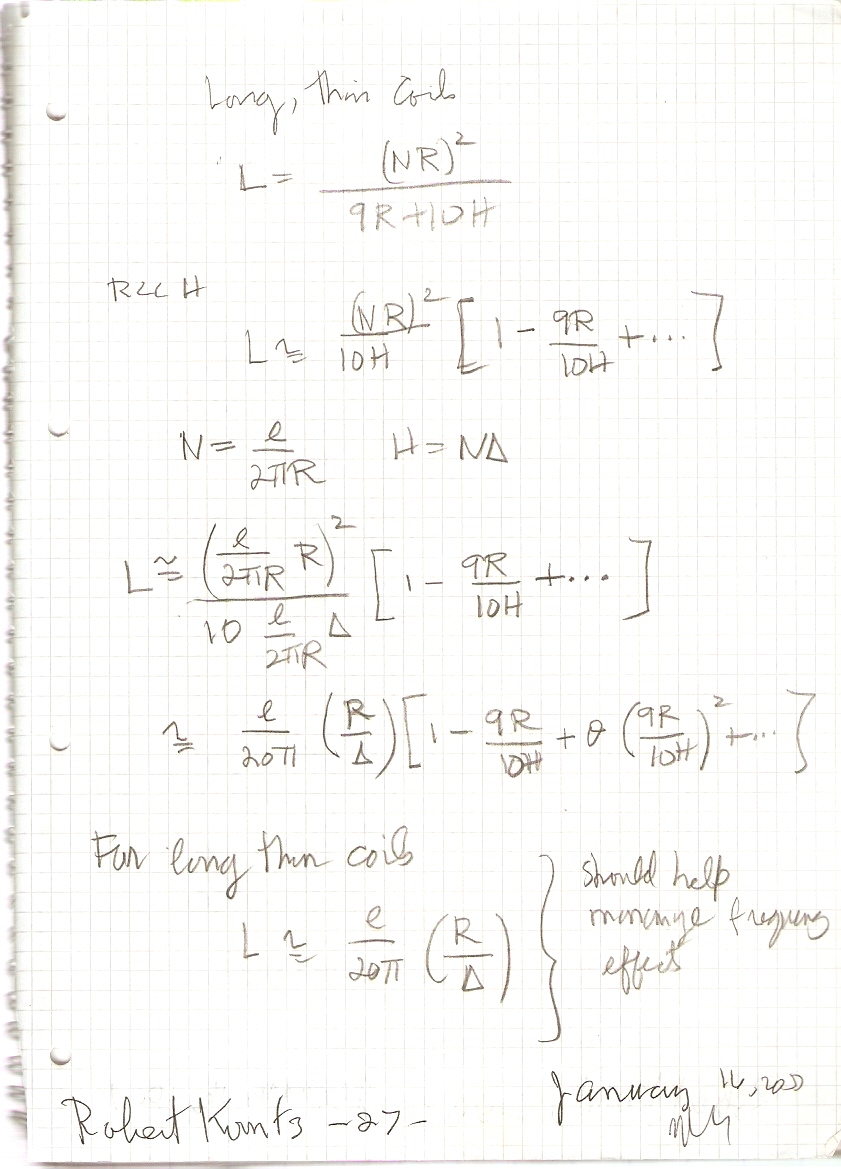 Long, thin Coils
L = (NR)² / 9R+10H
R<< H
L ≅ (NR)² / 10H [1 - 9R/10H + ...]
N = l / 2πR    H = NΔ
L ≅ (l/2πR R)² / 10 l/2πR Δ [1 - 9R/10H + ...]
≅ l/20π (R/Δ) [1 - 9R/10H + θ (9R/10H)² + ...]
For long thin coils
L ≅ l/20π (R/Δ) } should help
minimize frequency
effects
January
Robert -27-